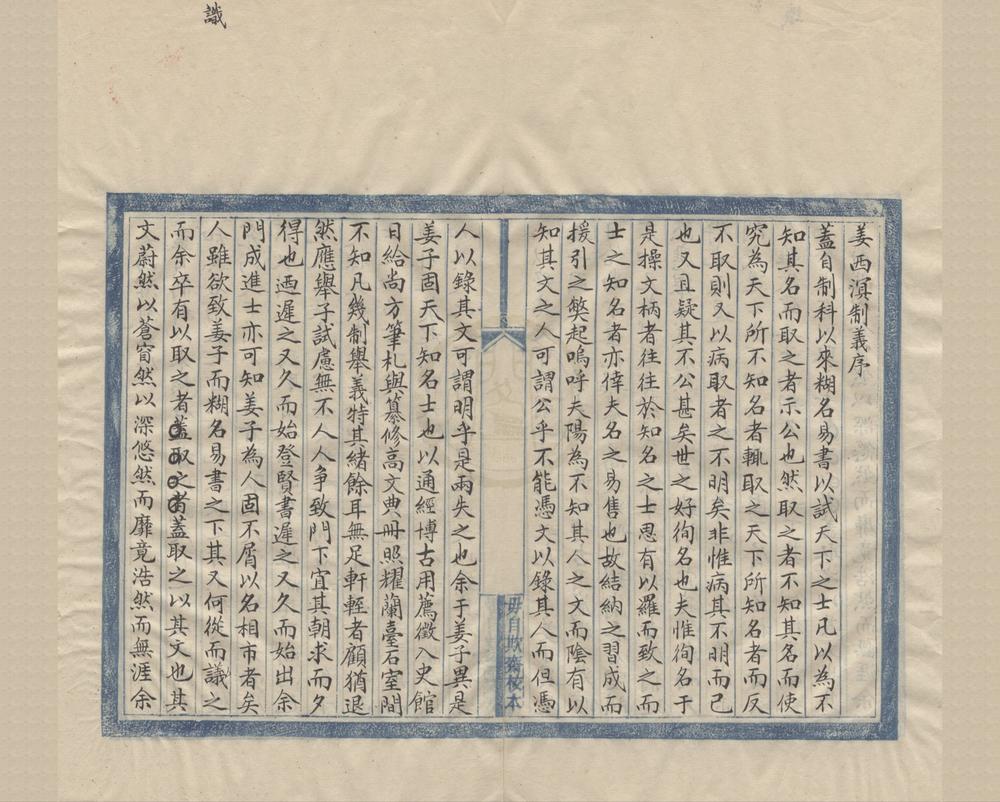 識
姜西溟制義序
蓋自制科以來糊名易書以試天下之士凡以為不
知其名而取之者示公也然取之者不知其名而使
究為天下所不知名者輒取之天下所知名者而反
不取則又以病取者之不明矣非惟病其不明而已
也又且疑其不公甚矣世之好徇名也夫惟徇名于
是操文柄者往往於知名之士思有以羅而致之而
士之知名者亦倖夫名之易售也故結納之習成而
援引之獘起嗚呼夫陽為不知其人之文而陰有以
知其文之人可謂公乎不能憑文以錄其人而但憑
毋自欺齋校本
人以錄其文可謂明乎是兩失之也余于姜子異是
姜子固天下知名士也以通經博古用薦徵入史館
日給尚方筆札與纂修高文典冊照耀蘭臺石室間
不知凡幾制舉義特其緒餘耳無足軒輊者顧猶退
然應舉子試慮無不人人爭致門下宜其朝求而夕
得也迺遲之又久而始登賢書遲之又久而始出余
門成進士亦可知姜子為人固不屑以名相市者矣
人雖欲致姜子而糊名易書之下其又何從而議之
而余卒有以取之者蓋取之者蓋取之以其文也其
文蔚然以蒼窅然以深悠然而靡竟浩然而無涯余